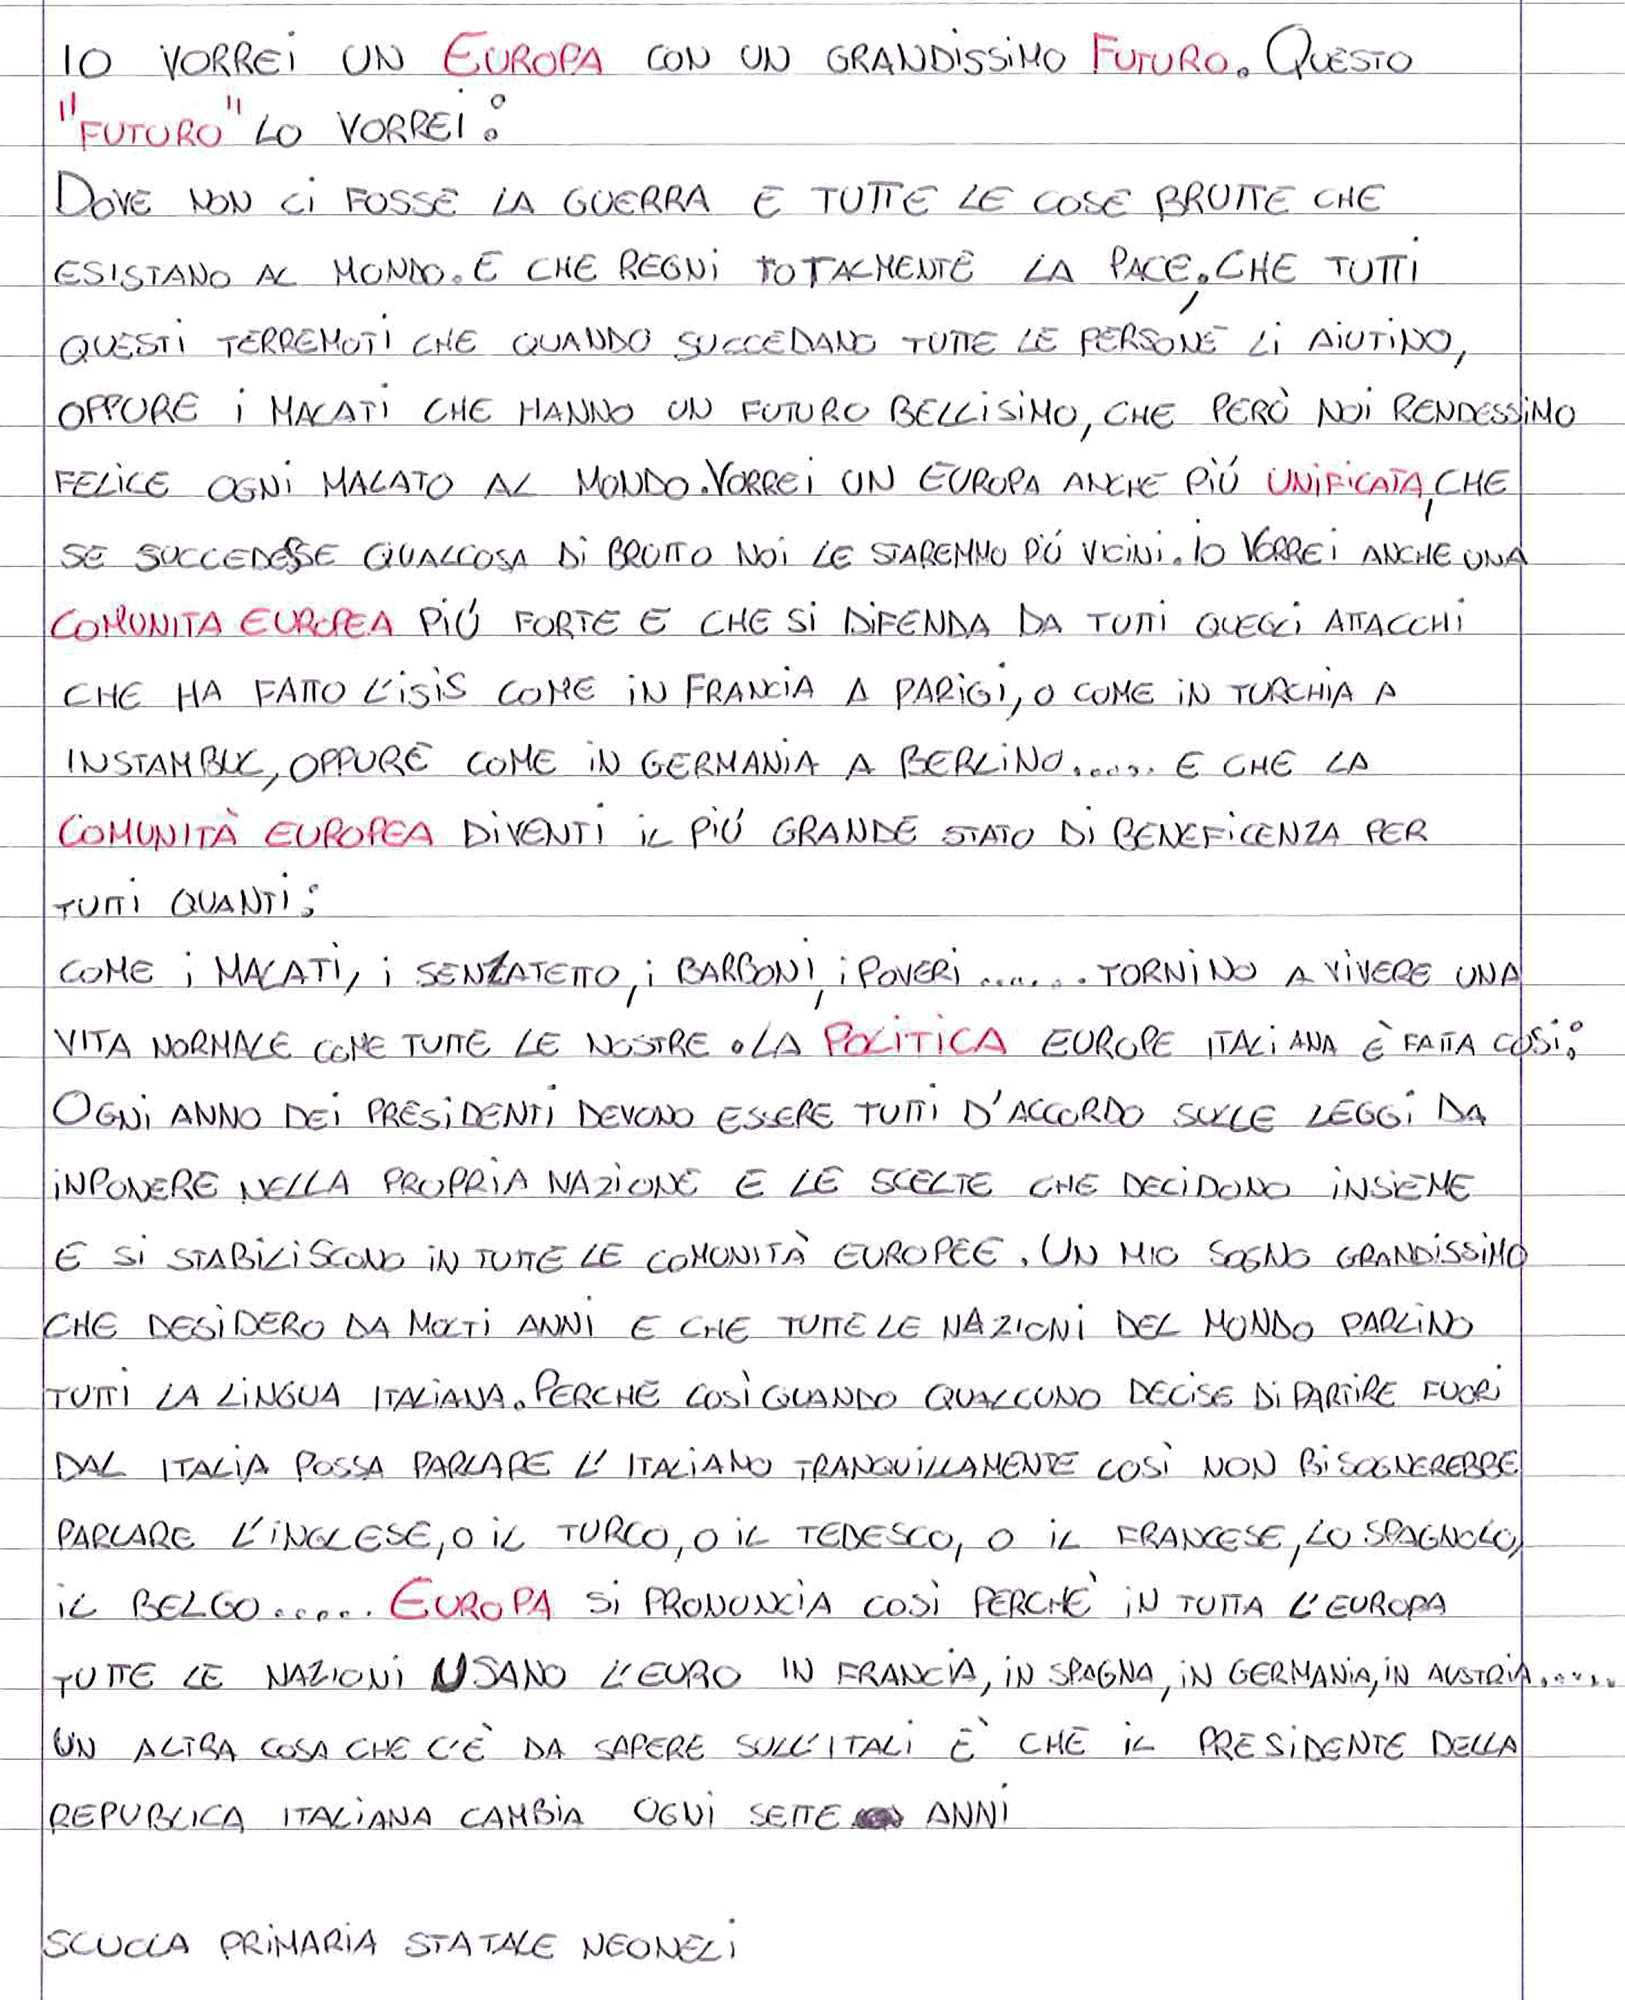 IO VORREI UN EUROPA CON UN GRANDISSIMO FUTURO. QUESTO
"FUTURO" LO VORREI:
DOVE NON CI FOSSE LA GUERRA E TUTTE LE COSE BRUTTE CHE
ESISTANO AL MONDO. E CHE REGNI TOTALMENTE LA PACE, CHE TUTTI
QUESTI TERREMOTI CHE QUANDO SUCCEDANO TUTTE LE PERSONE LI AIUTINO,
OPPURE I MALATI CHE HANNO UN FUTURO BELLISIMO, CHE PERÒ NOI RENDESSIMO
FELICE OGNI MALATO AL MONDO. VORREI UN EUROPA ANCHE PIÚ UNIFICATA, CHE
SE SUCCEDESSE QUALCOSA DI BRUTTO NOI LE STAREMMO PIÚ VICINI. IO VORREI ANCHE UNA
COMUNITA EUROPEA PIÚ FORTE E CHE SI DIFENDA DA TUTTI QUEGLI ATTACCHI
CHE HA FATTO L'ISIS COME IN FRANCIA A PARIGI, O COME IN TURCHIA A
INSTAMBUL, OPPURE COME IN GERMANIA A BERLINO...... E CHE LA
COMUNITÀ EUROPEA DIVENTI IL PIÚ GRANDE STATO DI BENEFICENZA PER
TUTTI QUANTI:
COME I MALATI, I SENZATETTO, I BARBONI, I POVERI ....... TORNINO A VIVERE UNA
VITA NORMALE COME TUTTE LE NOSTRE. LA POLITICA EUROPE ITALIANA È FATTA COSI:
OGNI ANNO DEI PRESIDENTI DEVONO ESSERE TUTTI D'ACCORDO SULLE LEGGI DA
INPONERE NELLA PROPRIA NAZIONE E LE SCELTE CHE DECIDONO INSIEME
E SI STABILISCONO IN TUTTE LE COMUNITÀ EUROPEE. UN MIO SOGNO GRANDISSIMO
CHE DESIDERO DA MOLTI ANNI E CHE TUTTE LE NAZIONI DEL MONDO PARLINO
TUTTI LA LINGUA ITALIANA. PERCHE COSÌ QUANDO QUALCUNO DECISE DI PARTIRE FUORI
DAL ITALIA POSSA PARLARE L'ITALIANO TRANQUILLAMENTE COSÌ NON BISOGNEREBBE
PARLARE L'INGLESE, O IL TURCO, O IL TEDESCO, O IL FRANCESE, LO SPAGNOLO,
IL BELGO...... EUROPA SI PRONUNCIA COSÌ PERCHÈ IN TUTTA L'EUROPA
TUTTE LE NAZIONI USANO L'EURO IN FRANCIA, IN SPAGNA, IN GERMANIA, IN AUSTRIA......
UN ALTRA COSA CHE C'È DA SAPERE SULL'ITALI È CHE IL PRESIDENTE DELLA
REPUBLICA ITALIANA CAMBIA OGNI SETTE ANNI
SCUOLA PRIMARIA STATALE NEONELI